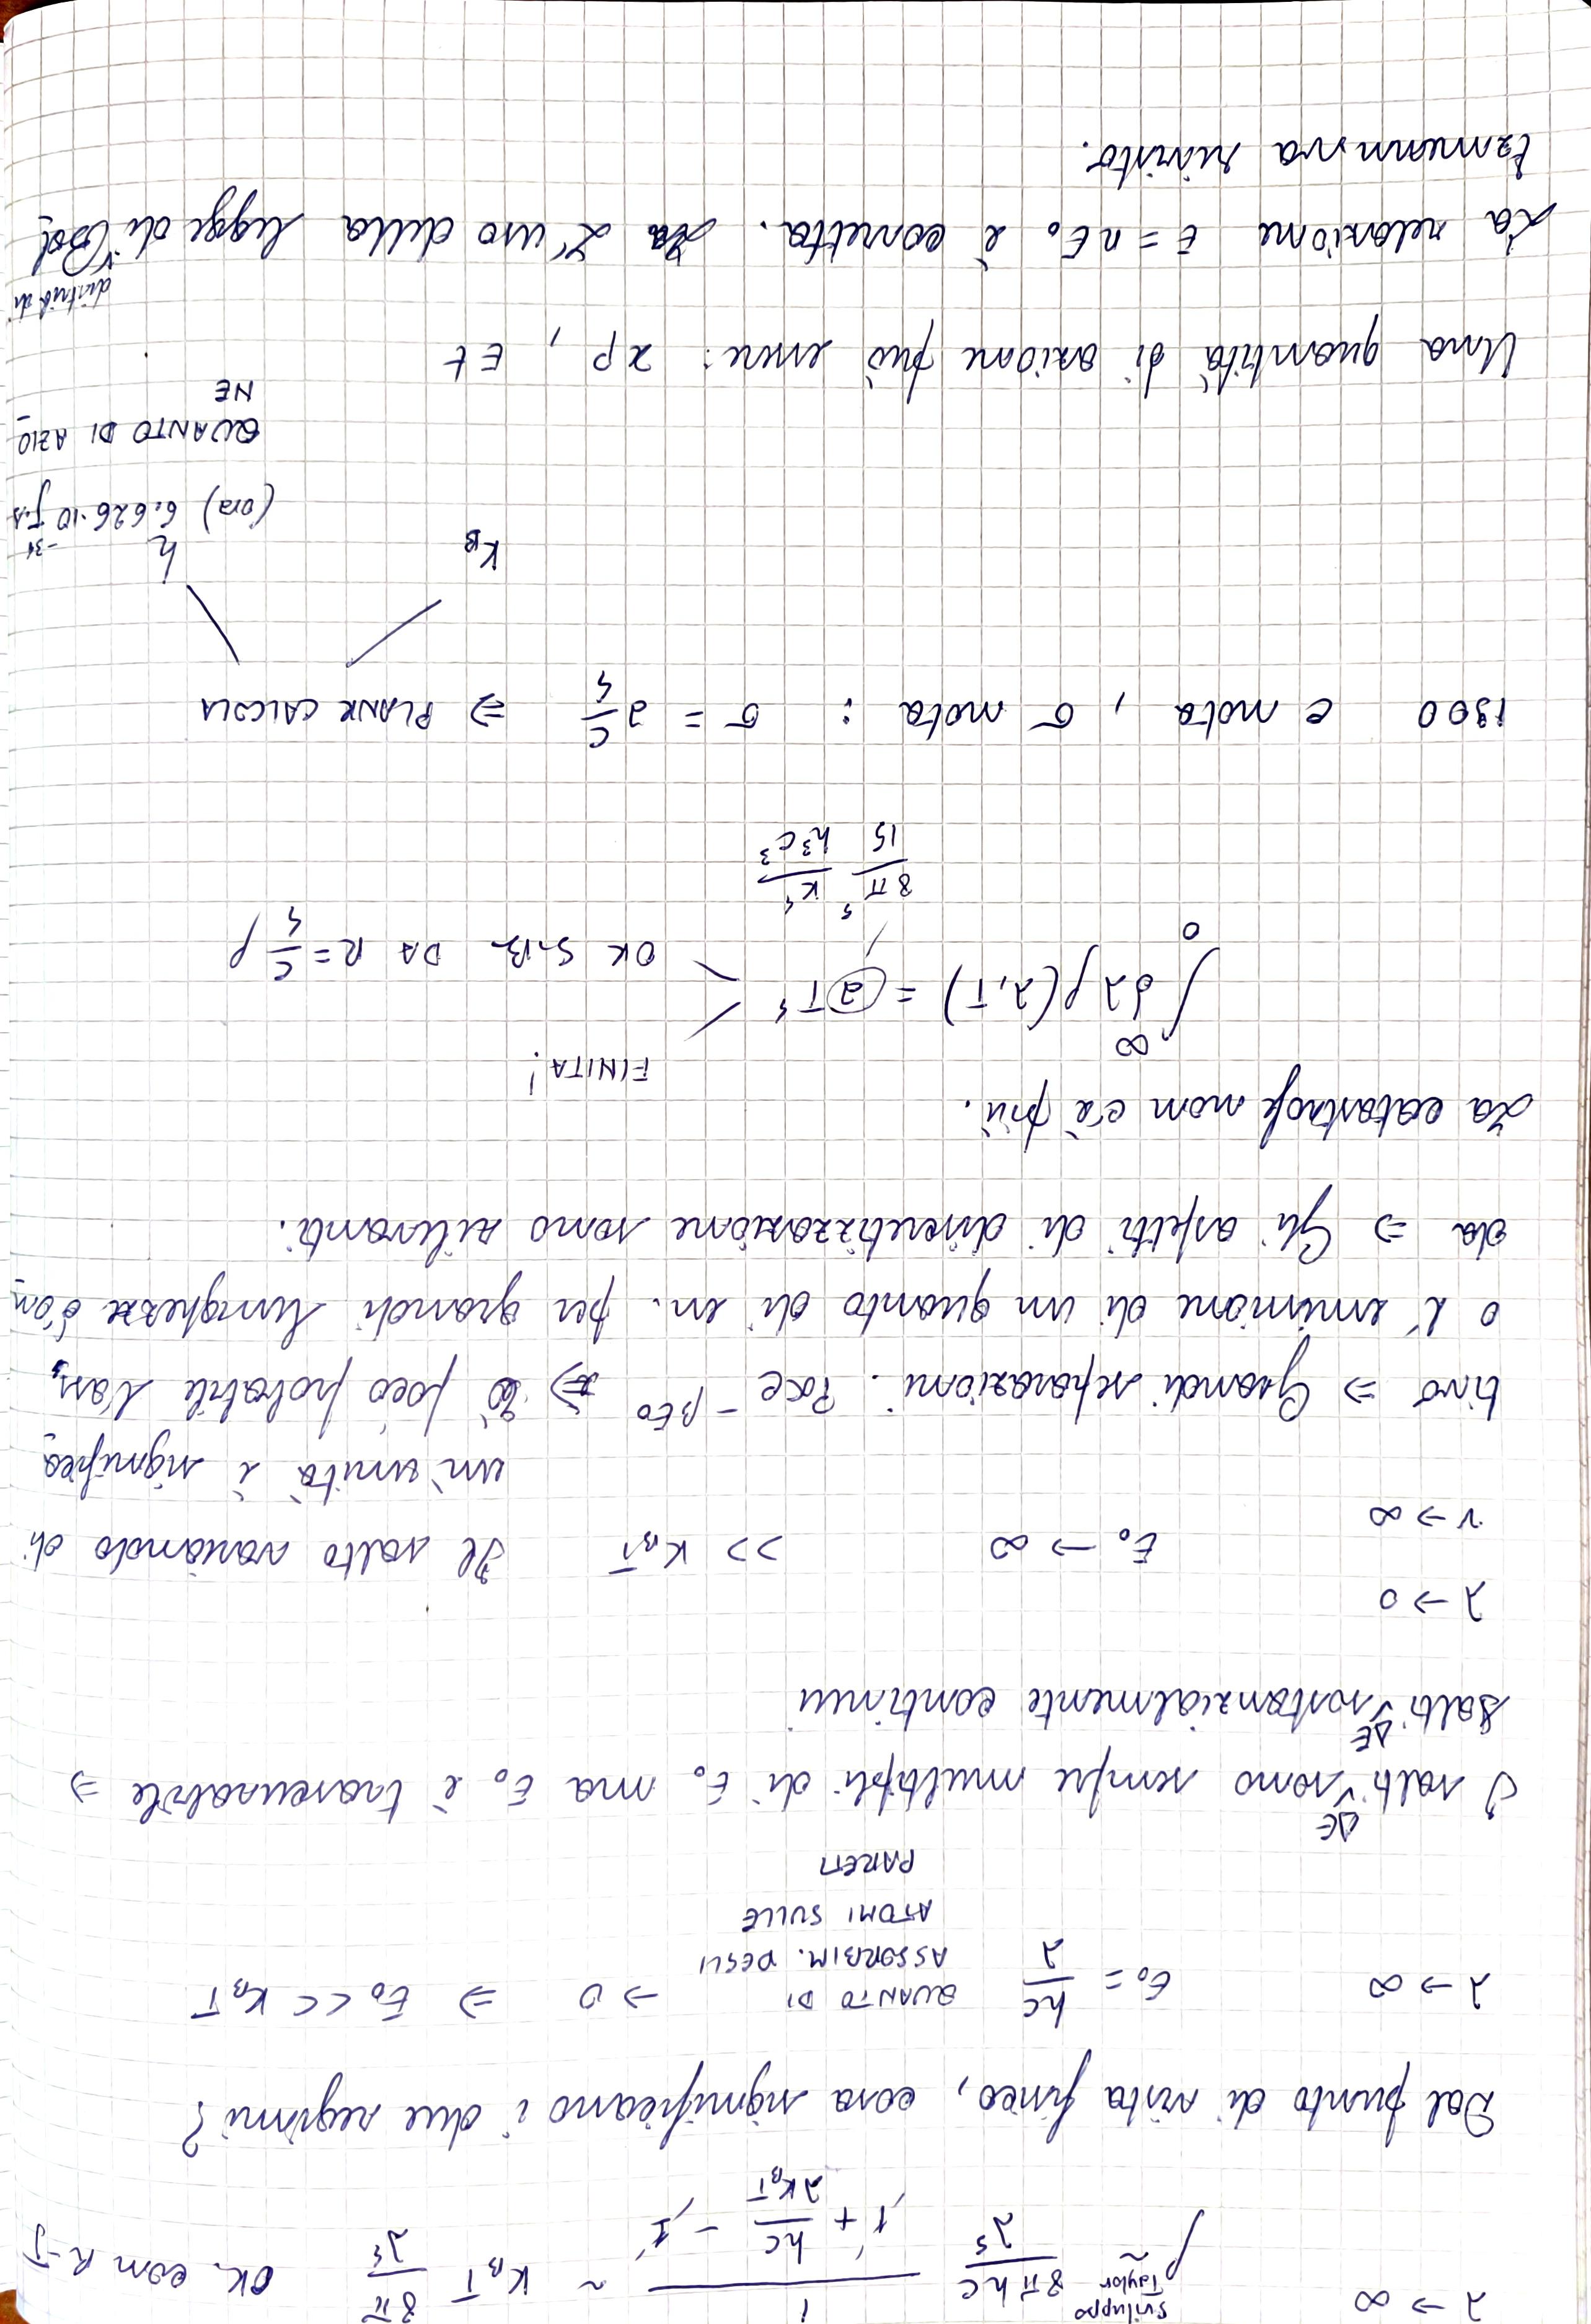 λ → ∞ ρ ≃ (sviluppo Taylor) 8πhc/λ⁵ 1/(1 + hc/(λK_BT) - 1) ~ K_BT 8π/λ⁴ OK con R-J
Dal punto di vista fisico, cosa significano i due regimi?
λ → ∞ E₀ = hc/λ QUANTO DI ASSORBIM. DEGLI ATOMI SULLE PARETI → 0 ⇒ E₀ << K_BT
I salti ΔE sono sempre multipli di E₀ ma E₀ è trascurabile ⇒
salti ΔE sostanzialmente continui
λ → 0
ν → ∞ E₀ → ∞ >> K_BT Il salto variando di
un'unità è significa
tivo ⇒ Grandi separazioni. P ∝ e^-βE₀ ⇒ È poco probabile l'ass.
o l'emissione di un quanto di en. per grandi lunghezze d'on
da ⇒ Gli aspetti di discretizzazione sono rilevanti.
La catastrofe non c'è più.
∫₀^∞ dλ ρ(λ,T) = a T⁴ FINITA!
OK S-B DA R = c/4 ρ
8π⁵/15 k⁴/(h³c³)
1900 c nota, σ nota : σ = a c/4 ⇒ PLANK CALCOLA
K_B h
(ora) 6.626·10⁻³⁴ J·s
QUANTO DI AZIO
NE
Una quantità di azione può essere: xp, Et
distrib di
La relazione E = nE₀ è corretta. L'uso della legge di Bol
tzmann va rivisto.